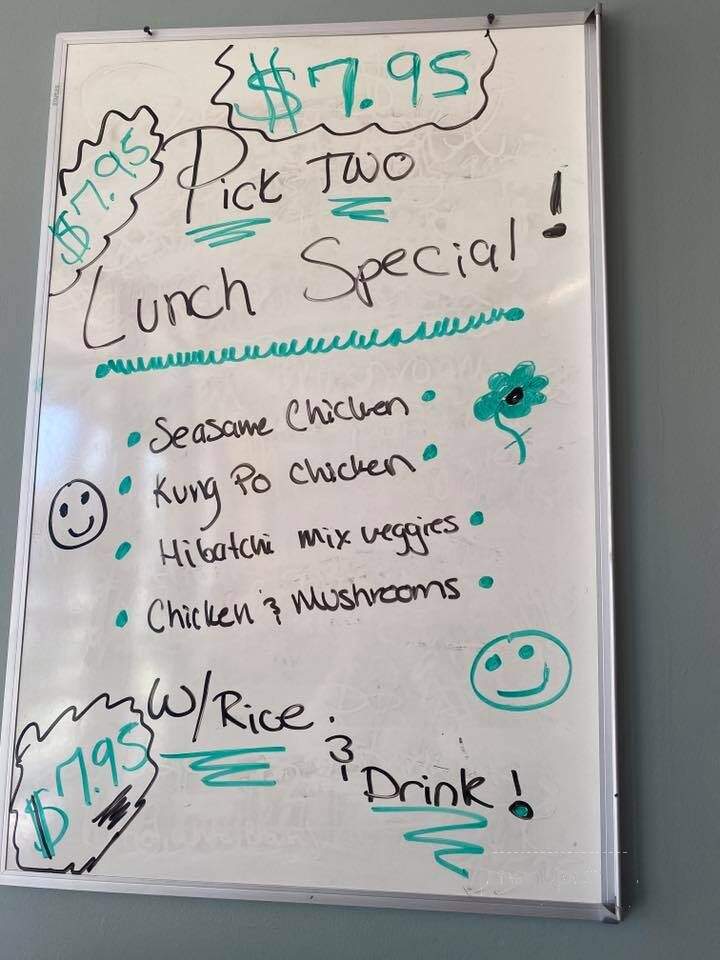 $7.95
$7.95
Pick TWO
Lunch Special!
• Seasame Chicken •
• Kung Po Chicken •
• Hibatchi mix veggies •
• Chicken & Mushrooms •
W/Rice.
&
Drink!
$7.95